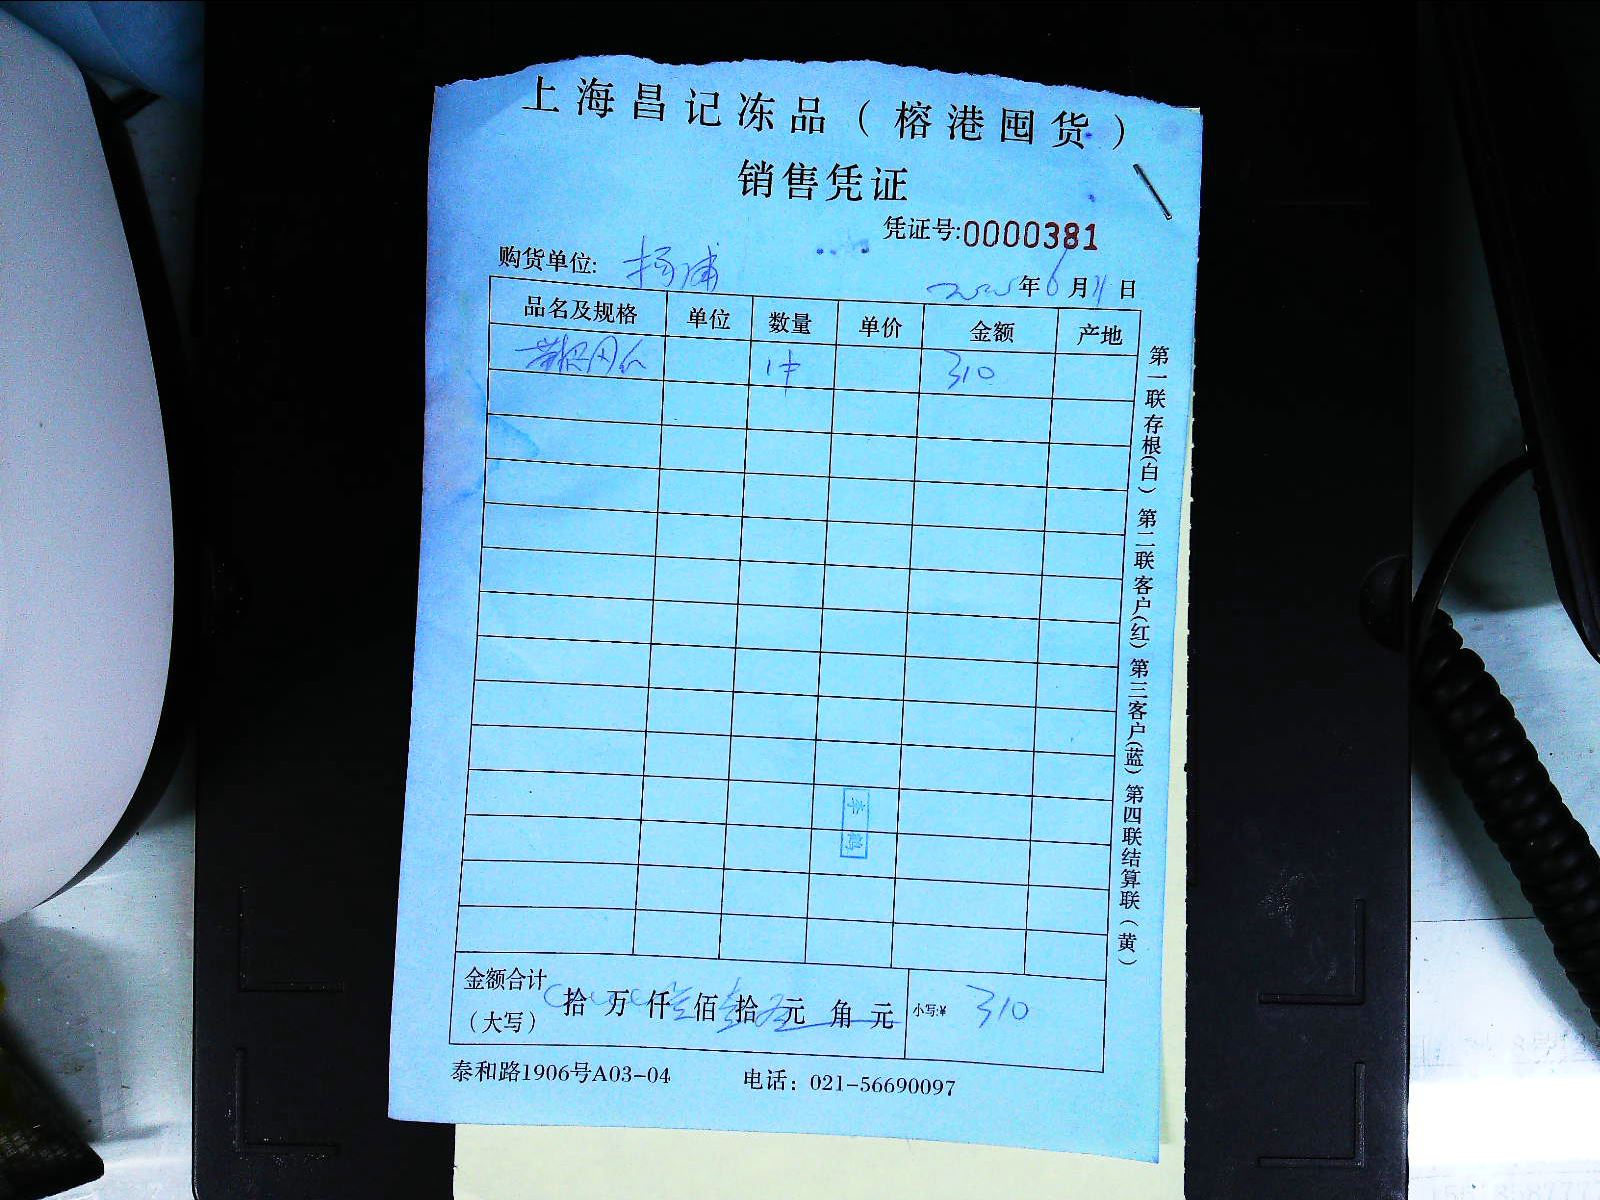 上海昌记冻品（榕港囤货）
销售凭证
凭证号:0000381
购货单位: 杨浦
2025年6月11日
品名及规格 单位 数量 单价 金额 产地
1件 310
金额合计（大写） 拾 万 仟 叁佰 壹拾 元 角 元 小写:¥ 310
泰和路1906号A03-04 电话：021-56690097
第一联存根(白) 第二联客户(红) 第三客户(蓝) 第四联结算联（黄）